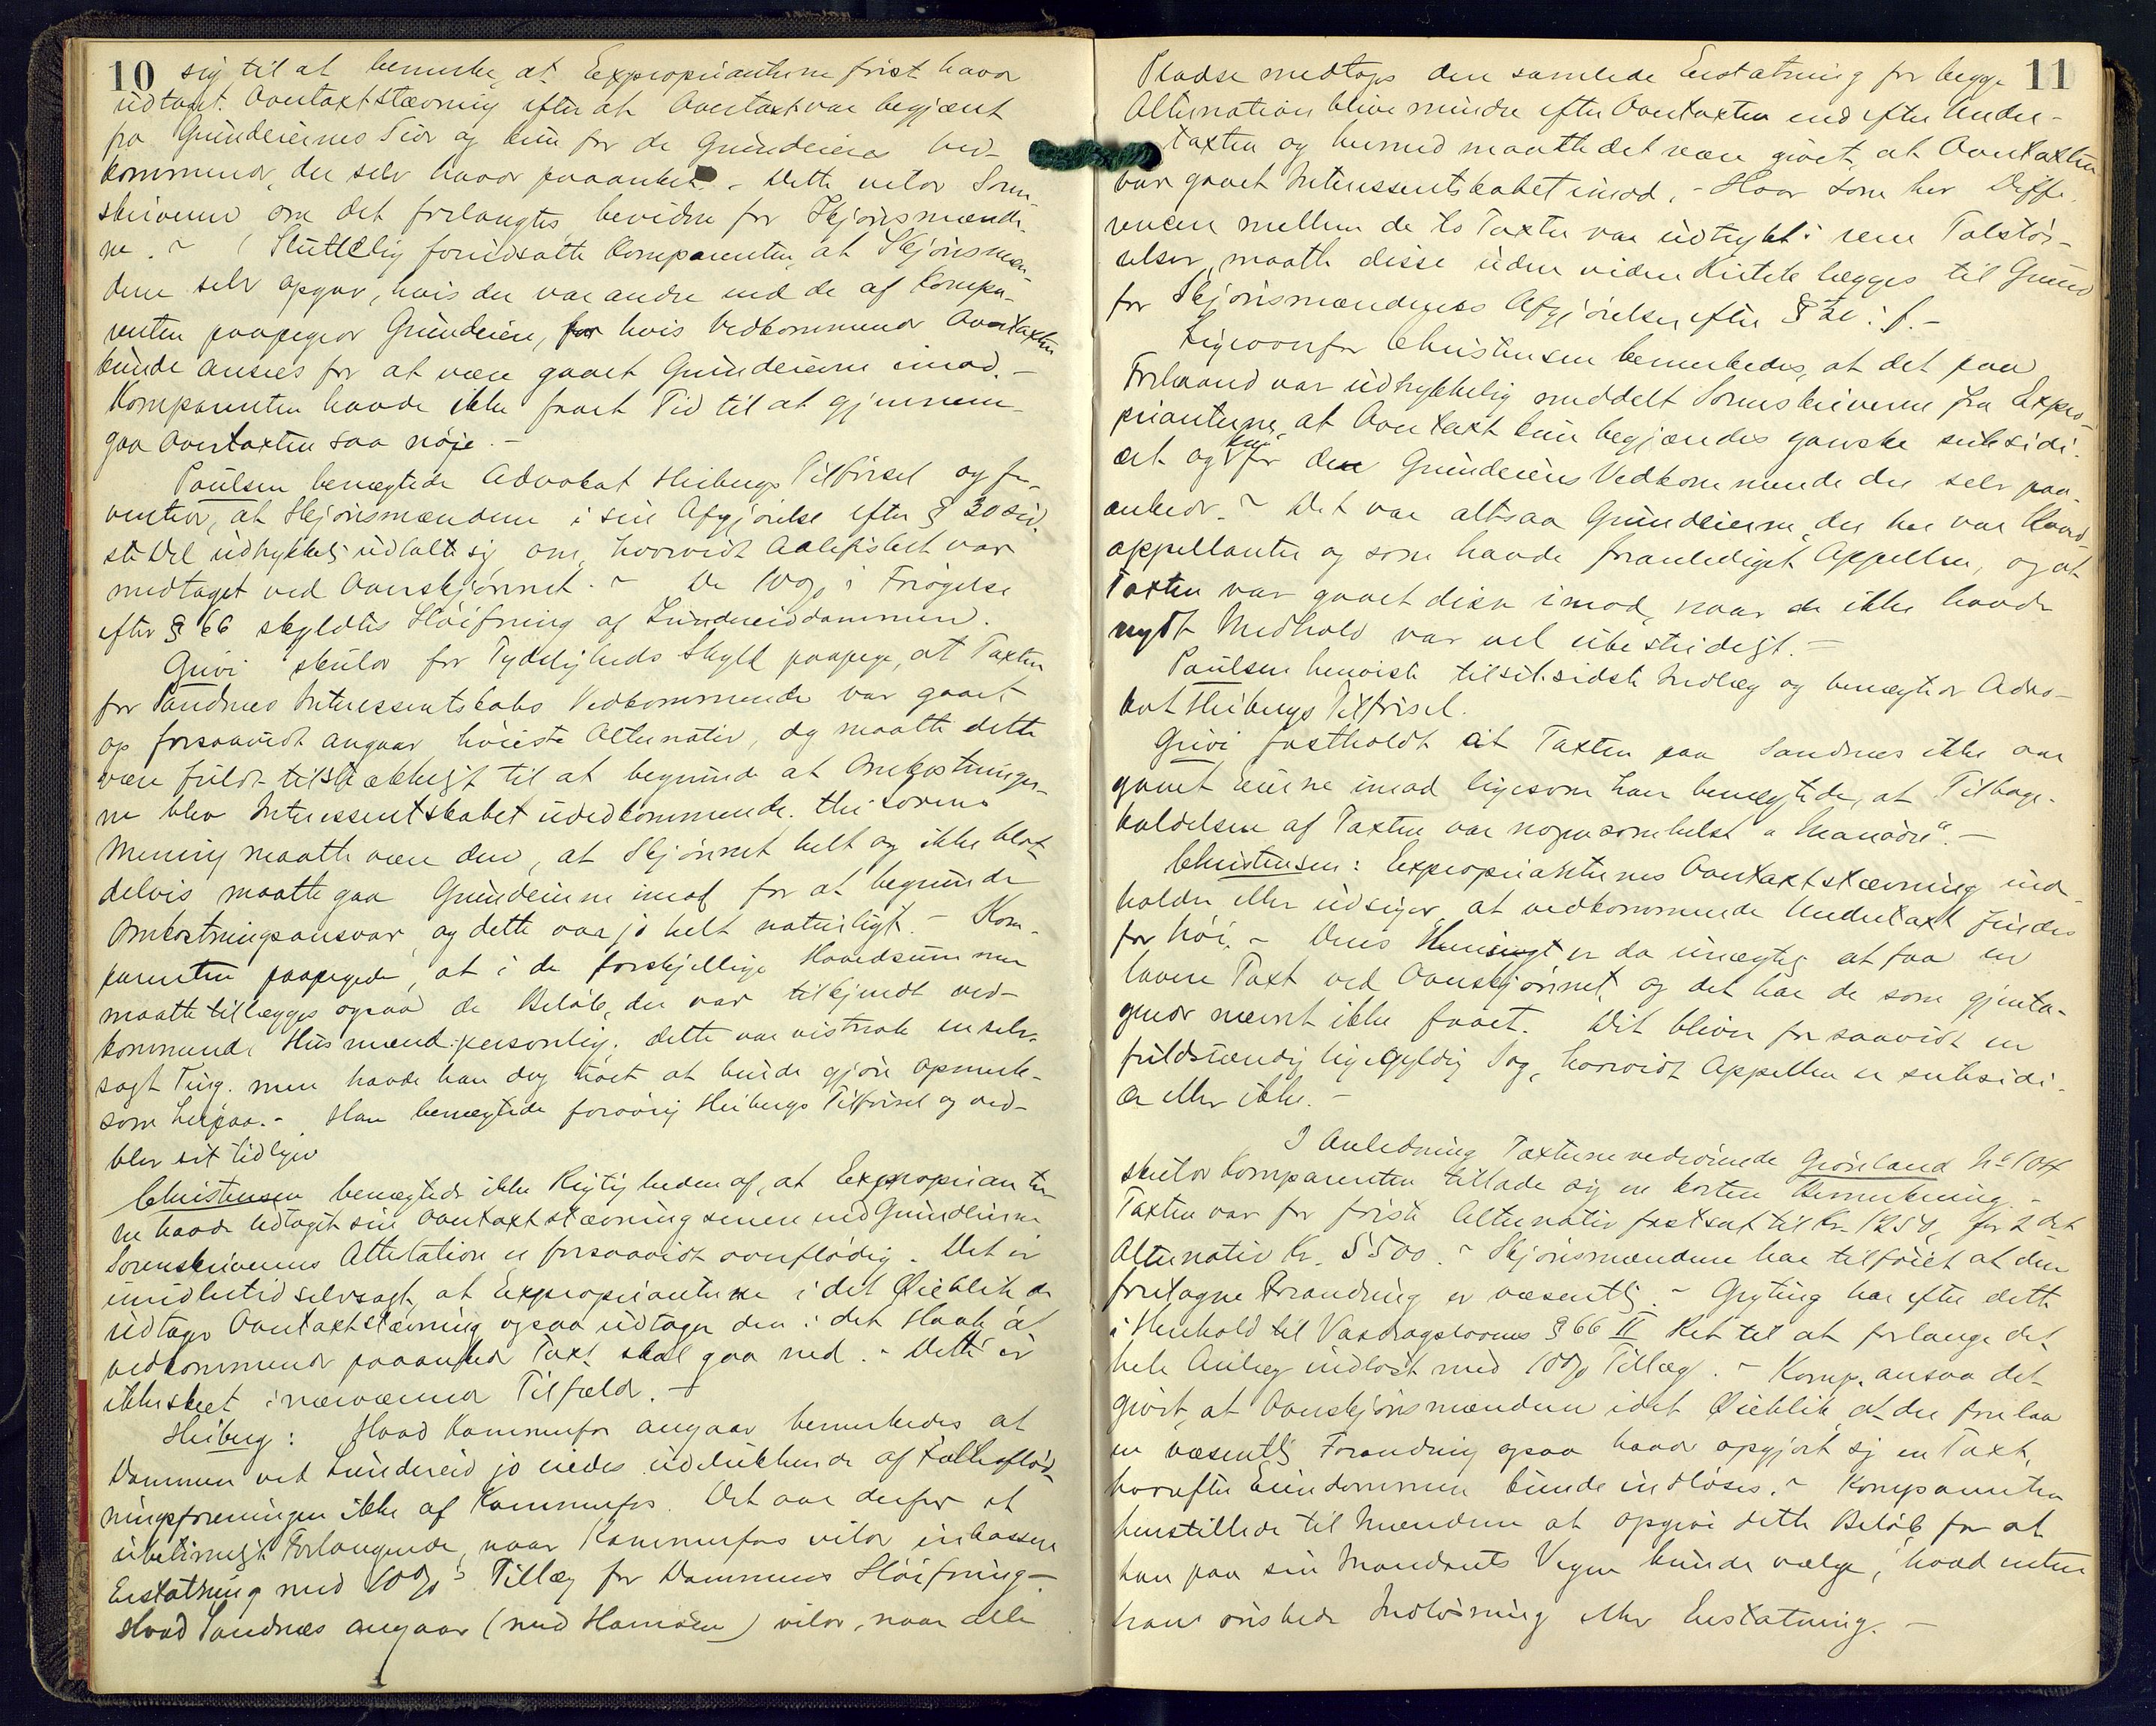 10
sig til at bemerke, at Expropriantene først havde
udtaget Overtaxtstævning efter at Overtaxt var begjært
fra Grundeiernes Side og kun for de Grundeieres Ved-
kommende, der selv havde paaanket. - Dette vilde Soren-
skriveren om det forlangtes bevidne for Skjønsmænde-
ne. ~ Sluttelig forudsatte Komparenten, at Skjønsmæn-
dene selv opgav, hvis der var andre end de af Kompa-
renten paapegede Grundeiere, for hvis Vedkommende Overtaxten
kunde ansees for at være gaaet Grundeierne imod. -
Komparenten havde ikke faaet Tid til at gjennem-
gaa Overtaxten saa nøje. -
Paulsen benægtede Advokat Heibergs Tilførsel og for-
ventede, at Skjønsmændene i sin Afgjørelse efter § 20 sid-
ste Del udtrykkelig udtalte sig om, hvorvidt Aalefisket var
medtaget ved Overskjønnet. ~ De 10% i Forøgelse
efter § 66 skyldtes Høifning af Lundereiddammen.
Grivi skulde for Tydeligheds Skyld paapege, at Taxten
for Sandnes Interessentskabs Vedkommende var gaaet
op forsaavidt angaar høieste Alternativ, og maatte dette
være fuldt tilstrækkeligt til at begrunde at Omkostninger-
ne blev Interessentskabet uvedkommende, thi Lovens
Mening maatte være den, at Skjønnet helt og ikke blot
delvis maatte gaa Grundeierne imod for at begrunde
Omkostningsansvar, og dette var jo helt naturligt. - Kom-
parenten paapegede, at i de forskjellige Hovedsummer
maatte tillægges ogsaa de Beløb, der var tilkjendt ved-
kommende Husmænd personlig; dette var vistnok en selv-
sagt Ting, men havde han dog troet at burde gjøre opmerk-
som herpaa. - Han benægtede forøvrig Heibergs Tilførsel og ved-
blev sit tidligere
Christensen benægtede ikke Rigtigheden af, at Exproprianter-
ne havde udtaget sin Overtaxtstævning senere end Grundeierne
Sorenskriverens Attestation er forsaavidt overflødig. Det er
imidlertid selvsagt, at Expropriantene i det Øieblik de
udtager Overtaxtstævning ogsaa udtager den i det Haab at
vedkommende paaankede Taxt skal gaa ned. - Dette er
ikke skeet i nærværende Tilfælde. -
Heiberg: Hvad Kammerfos angaar bemerkedes at
Dammen ved Lundereid jo eiedes udelukkende af Fællesfløt-
ningsforeningen ikke af Kammerfos. Det var derfor et
ubetimeligt Forlangende, naar Kammerfos vilde inkassere
Erstatning med 10%s Tillæg for Dammens Høifning. -
Hvad Sandnes angaar (med Hansøen) vilde, naar alle
11
Pladse medtages den samlede Erstatning for begge
Alternativer blive mindre efter Overtaxten end efter Under-
taxten og hermed maatte det være givet, at Overtaxten
var gaaet Interessentskabet imod. - Hvor som her Diffe-
rencen mellem de to Taxter var udtrykt i rene Talstør-
relser, maatte disse uden videre Kritik lægges til Grund
for Skjønsmændenes Afgjørelse efter § 20 i. f. -
Ligeoverfor Christensen bemerkedes, at det paa
Forhaand var udtrykkelig meddelt Sorenskriveren fra Expro-
priantene, at Overtaxt kun begjæredes ganske subsidi-
ært og kun for de Grundeieres Vedkommende der selv paa-
ankede. ~ Det var altsaa Grundeierne, der her var Hoved-
appellanter og som havde foranlediget Appellen, og at
Taxten var gaaet disse imod, naar de ikke havde
nydt Medhold var vel ubestrideligt. -
Paulsen henviste til sit sidste Indlæg og benægtede Advo-
kat Heibergs Tilførsel.
Grivi fastholdt at Taxten paa Sandnes ikke var
gaaet Eierne imod ligesom han benægtede, at Tilbage-
holdelsen af Taxten var nogensomhelst "Manøvre". -
Christensen: Expropriantenes Overtaxtstævning inde-
holder eller udsiger, at vedkommende Undertaxt findes
for høi. ~ Deres Hensigt er da unægtelig at faa en
lavere Taxt ved Overskjønnet, og det har de som gjenta-
gende nævnt ikke faaet. Det bliver for saavidt en
fuldstændig ligegyldig Sag, hvorvidt Appellen er subsidi-
ær eller ikke. -
I Anledning Taxterne vedrørende Grønland No 104
skulde Komparenten tillade sig en kortere Bemerkning. -
Taxten var for første Alternativ fastsat til Kr. 1250, for 2det
Alternativ Kr. 5500. ~ Skjønsmændene har tilføiet at den
foretagne Forandring er væsentlig. ~ Gryting har efter dette
i Henhold til Vasdragslovens § 66 II Ret til at forlange det
hele Anlæg indløst med 10% Tillæg. ~ Komp. ansaa det
givet, at Overskjønsmændene i det Øieblik, at der forelaa
en væsentlig Forandring ogsaa havde opgjort sig en Taxt,
hvorefter Eiendommen kunde indløses. ~ Komparenten
henstillede til Mændene at opgive dette Beløb for at
han paa sin Mandants Vegne kunde vælge, hvad enten
han ønskede Indløsning eller Erstatning. -